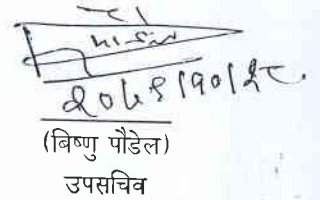 २०७९।१०।१८
(बिष्णु पौडेल)
उपसचिव